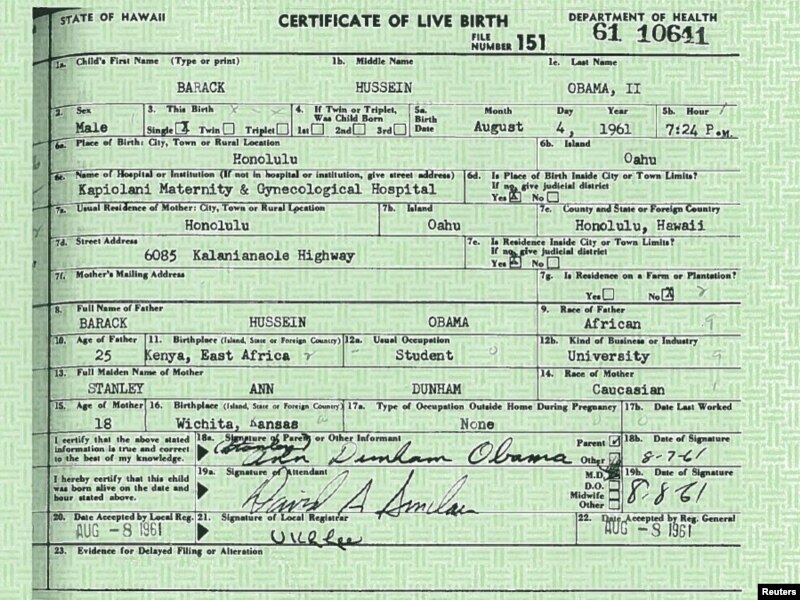 STATE OF HAWAII CERTIFICATE OF LIVE BIRTH DEPARTMENT OF HEALTH
FILE NUMBER 151 61 10641
1a. Child's First Name (Type or print) 1b. Middle Name 1c. Last Name
BARACK HUSSEIN OBAMA, II
2. Sex 3. This Birth 4. If Twin or Triplet, Was Child Born 5a. Birth Date Month Day Year 5b. Hour
Male Single X Twin Triplet 1st 2nd 3rd August 4, 1961 7:24 P.M.
6a. Place of Birth: City, Town or Rural Location 6b. Island
Honolulu Oahu
6c. Name of Hospital or Institution (If not in hospital or institution, give street address) 6d. Is Place of Birth Inside City or Town Limits? If no, give judicial district
Kapiolani Maternity & Gynecological Hospital Yes X No
7a. Usual Residence of Mother: City, Town or Rural Location 7b. Island 7c. County and State or Foreign Country
Honolulu Oahu Honolulu, Hawaii
7d. Street Address 7e. Is Residence Inside City or Town Limits? If no, give judicial district
6085 Kalanianaole Highway Yes X No
7f. Mother's Mailing Address 7g. Is Residence on a Farm or Plantation?
Yes No X
8. Full Name of Father 9. Race of Father
BARACK HUSSEIN OBAMA African
10. Age of Father 11. Birthplace (Island, State or Foreign Country) 12a. Usual Occupation 12b. Kind of Business or Industry
25 Kenya, East Africa Student University
13. Full Maiden Name of Mother 14. Race of Mother
STANLEY ANN DUNHAM Caucasian
15. Age of Mother 16. Birthplace (Island, State or Foreign Country) 17a. Type of Occupation Outside Home During Pregnancy 17b. Date Last Worked
18 Wichita, Kansas None
I certify that the above stated information is true and correct to the best of my knowledge. 18a. Signature of Parent or Other Informant Parent Other 18b. Date of Signature
(Stanley) Ann Dunham Obama 8-7-61
I hereby certify that this child was born alive on the date and hour stated above. 19a. Signature of Attendant M.D. D.O. Midwife Other 19b. Date of Signature
David A Sinclair 8-8-61
20. Date Accepted by Local Reg. 21. Signature of Local Registrar 22. Date Accepted by Reg. General
AUG -8 1961 U K L Lee AUG -8 1961
23. Evidence for Delayed Filing or Alteration
Reuters